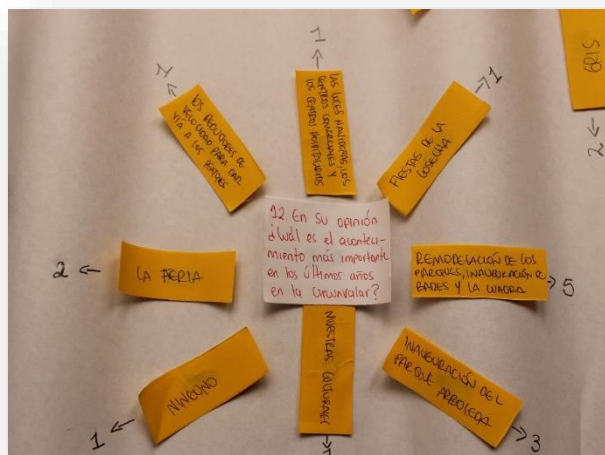 12. En su opinión
¿Cuál es el aconteci-
miento más importante
en los últimos años
en la circunvalar?
1
LAS LUCES NAVIDEÑAS, LOS
CENTROS COMERCIALES Y
LOS CENTROS HOSPITALARIOS
1
FIESTAS DE LA
COSECHA
REMODELACIÓN DE LOS
PARQUES, INAUGURACIÓN DE
BARES Y LA CUADRA
5
INAUGURACIÓN DEL
PARQUE ARBOLEDA
3
MUESTRAS CULTURALES
1
NINGUNO
1
LA FERIA
2
LOS REDUCTORES DE
VELOCIDAD PARA DAR
VÍA A LOS PEATONES
1
GRIS
2